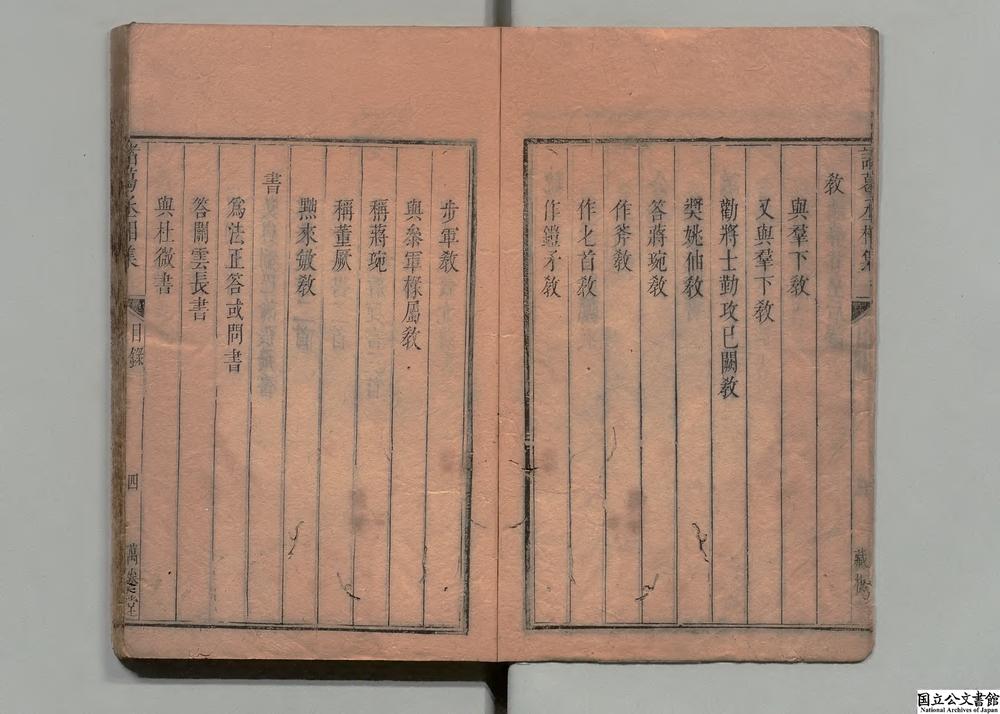 教
與羣下教
又與羣下教
勸將士勤攻已闕教
奬姚伷教
答蔣琬教
作斧教
作匕首教
作鎧矛教
步軍教
與參軍㨾屬教
稱蔣琬
稱董厥
黜來敏教
書
爲法正答或問書
答關雲長書
與杜微書
諸葛丞相集
目錄
四
萬卷堂
国立公文書館
National Archives of Japan